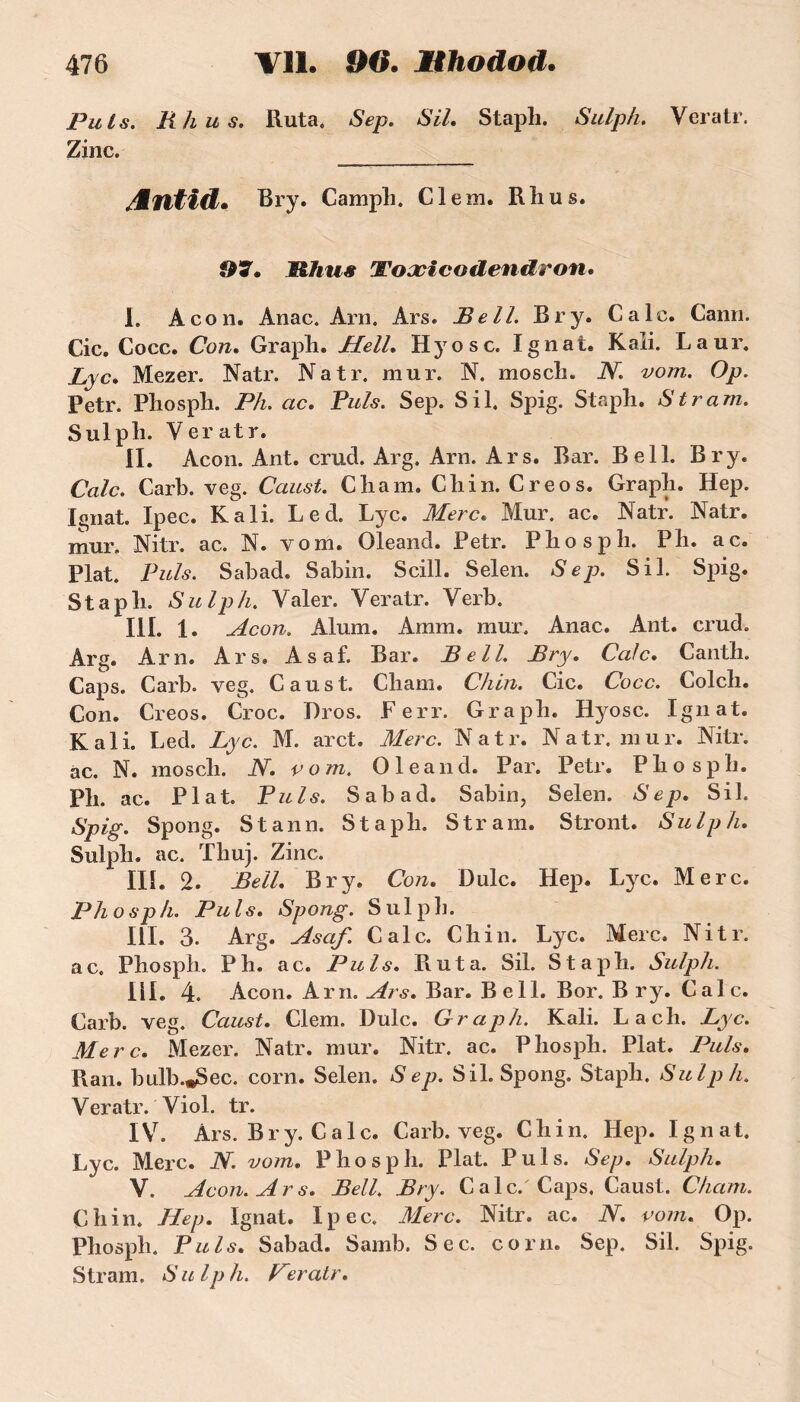 476 VII. 96. Rhodod.
Puls. Rhus. Ruta. Sep. Sil. Staph. Sulph. Veratr.
Zinc.
Antid. Bry. Camph. Clem. Rhus.
97. Rhus Toxicodendron.
I. Acon. Anac. Arn. Ars. Bell. Bry. Calc. Cann.
Cic. Cocc. Con. Graph. Hell. Hyosc. Ignat. Kali. Laur.
Lyc. Mezer. Natr. Natr. mur. N. mosch. N. vom. Op.
Petr. Phosph. Ph. ac. Puls. Sep. Sil. Spig. Staph. Stram.
Sulph. Veratr.
II. Acon. Ant. crud. Arg. Arn. Ars. Bar. Bell. Bry.
Calc. Carb. veg. Caust. Cham. Chin. Creos. Graph. Hep.
Ignat. Ipec. Kali. Led. Lyc. Merc. Mur. ac. Natr. Natr.
mur. Nitr. ac. N. vom. Oleand. Petr. Phosph. Ph. ac.
Plat. Puls. Sabad. Sabin. Scill. Selen. Sep. Sil. Spig.
Staph. Sulph. Valer. Veratr. Verb.
III. 1. Acon. Alum. Amm. mur. Anac. Ant. crud.
Arg. Arn. Ars. Asaf. Bar. Bell. Bry. Calc. Canth.
Caps. Carb. veg. Caust. Cham. Chin. Cic. Cocc. Colch.
Con. Creos. Croc. Dros. Ferr. Graph. Hyosc. Ignat.
Kali. Led. Lyc. M. arct. Merc. Natr. Natr. mur. Nitr.
ac. N. mosch. N. vom. Oleand. Par. Petr. Phosph.
Ph. ac. Plat. Puls. Sabad. Sabin, Selen. Sep. Sil.
Spig. Spong. Stann. Staph. Stram. Stront. Sulph.
Sulph. ac. Thuj. Zinc.
III. 2. Bell. Bry. Con. Dulc. Hep. Lyc. Merc.
Phosph. Puls. Spong. Sulph.
III. 3. Arg. Asaf. Calc. Chin. Lyc. Merc. Nitr.
ac. Phosph. Ph. ac. Puls. Ruta. Sil. Staph. Sulph.
III. 4. Acon. Arn. Ars. Bar. Bell. Bor. Bry. Calc.
Carb. veg. Caust. Clem. Dulc. Graph. Kali. Lach. Lyc.
Merc. Mezer. Natr. mur. Nitr. ac. Phosph. Plat. Puls.
Ran. bulb. Sec. corn. Selen. Sep. Sil. Spong. Staph. Sulph.
Veratr. Viol. tr.
IV. Ars. Bry. Calc. Carb. veg. Chin. Hep. Ignat.
Lyc. Merc. N. vom. Phosph. Plat. Puls. Sep. Sulph.
V. Acon. Ars. Bell. Bry. Calc. Caps. Caust. Cham.
Chin. Hep. Ignat. Ipec. Merc. Nitr. ac. N. vom. Op.
Phosph. Puls. Sabad. Samb. Sec. corn. Sep. Sil. Spig.
Stram. Sulph. Veratr.